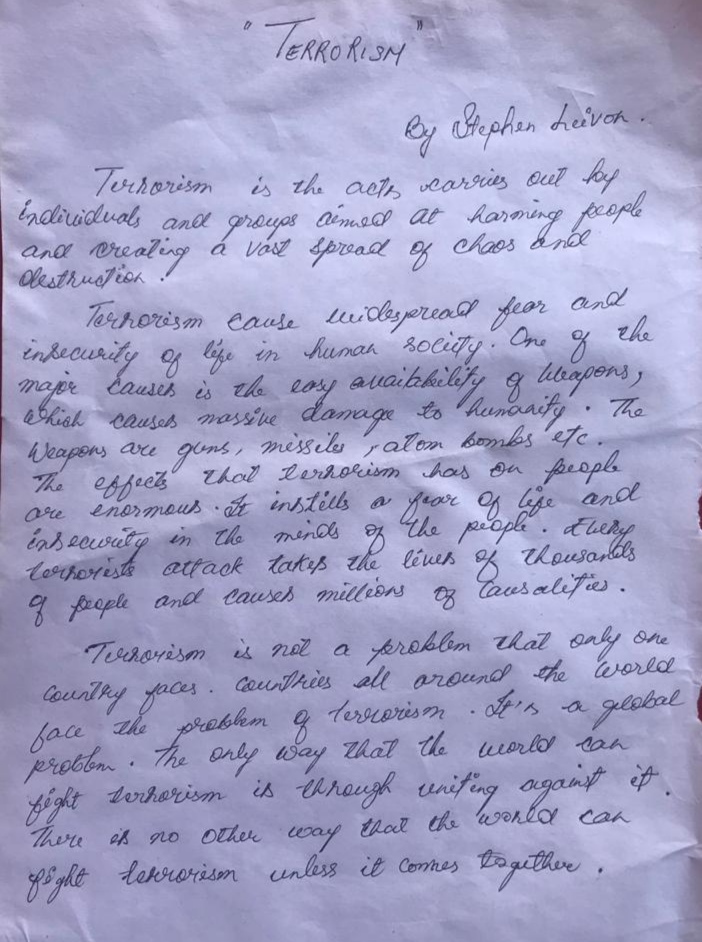 "TERRORISM"
By Stephen Leivon.
Terrorism is the acts carries out by
individuals and groups aimed at harming people
and creating a vast spread of chaos and
destruction.
Terrorism cause widespread fear and
insecurity of life in human society. One of the
major causes is the easy availability of weapons,
which causes massive damage to humanity. The
weapons are guns, missiles, atom bombs etc.
The effects that terrorism has on people
are enormous. It instills a fear of life and
insecurity in the minds of the people. Every
terrorists attack takes the lives of thousands
of people and causes millions of causalities.
Terrorism is not a problem that only one
country faces. Countries all around the world
face the problem of terrorism. It's a global
problem. The only way that the world can
fight terrorism is through uniting against it.
There is no other way that the world can
fight terrorism unless it comes together.